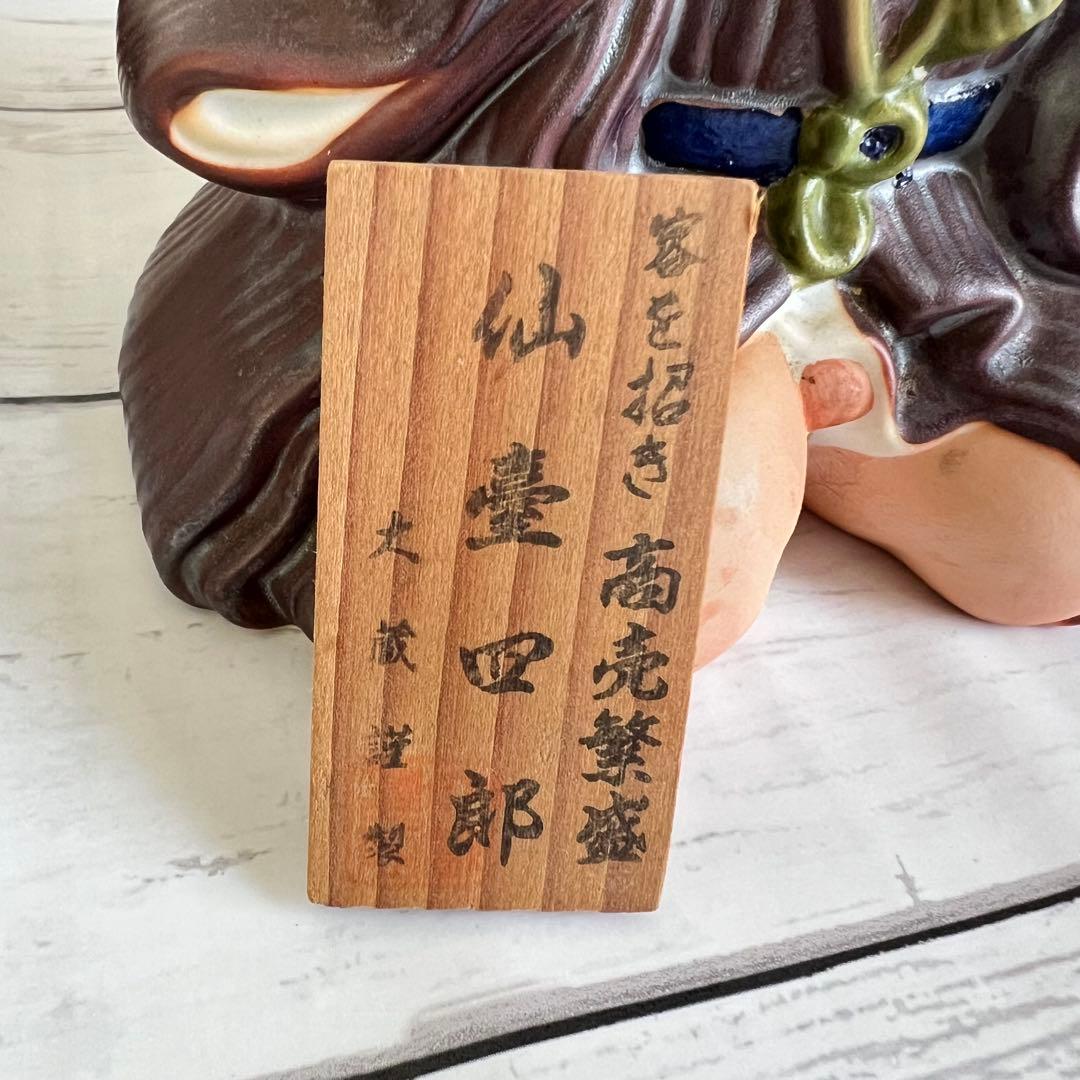 客を招き 商売繁盛
仙臺四郎
大蔵謹製